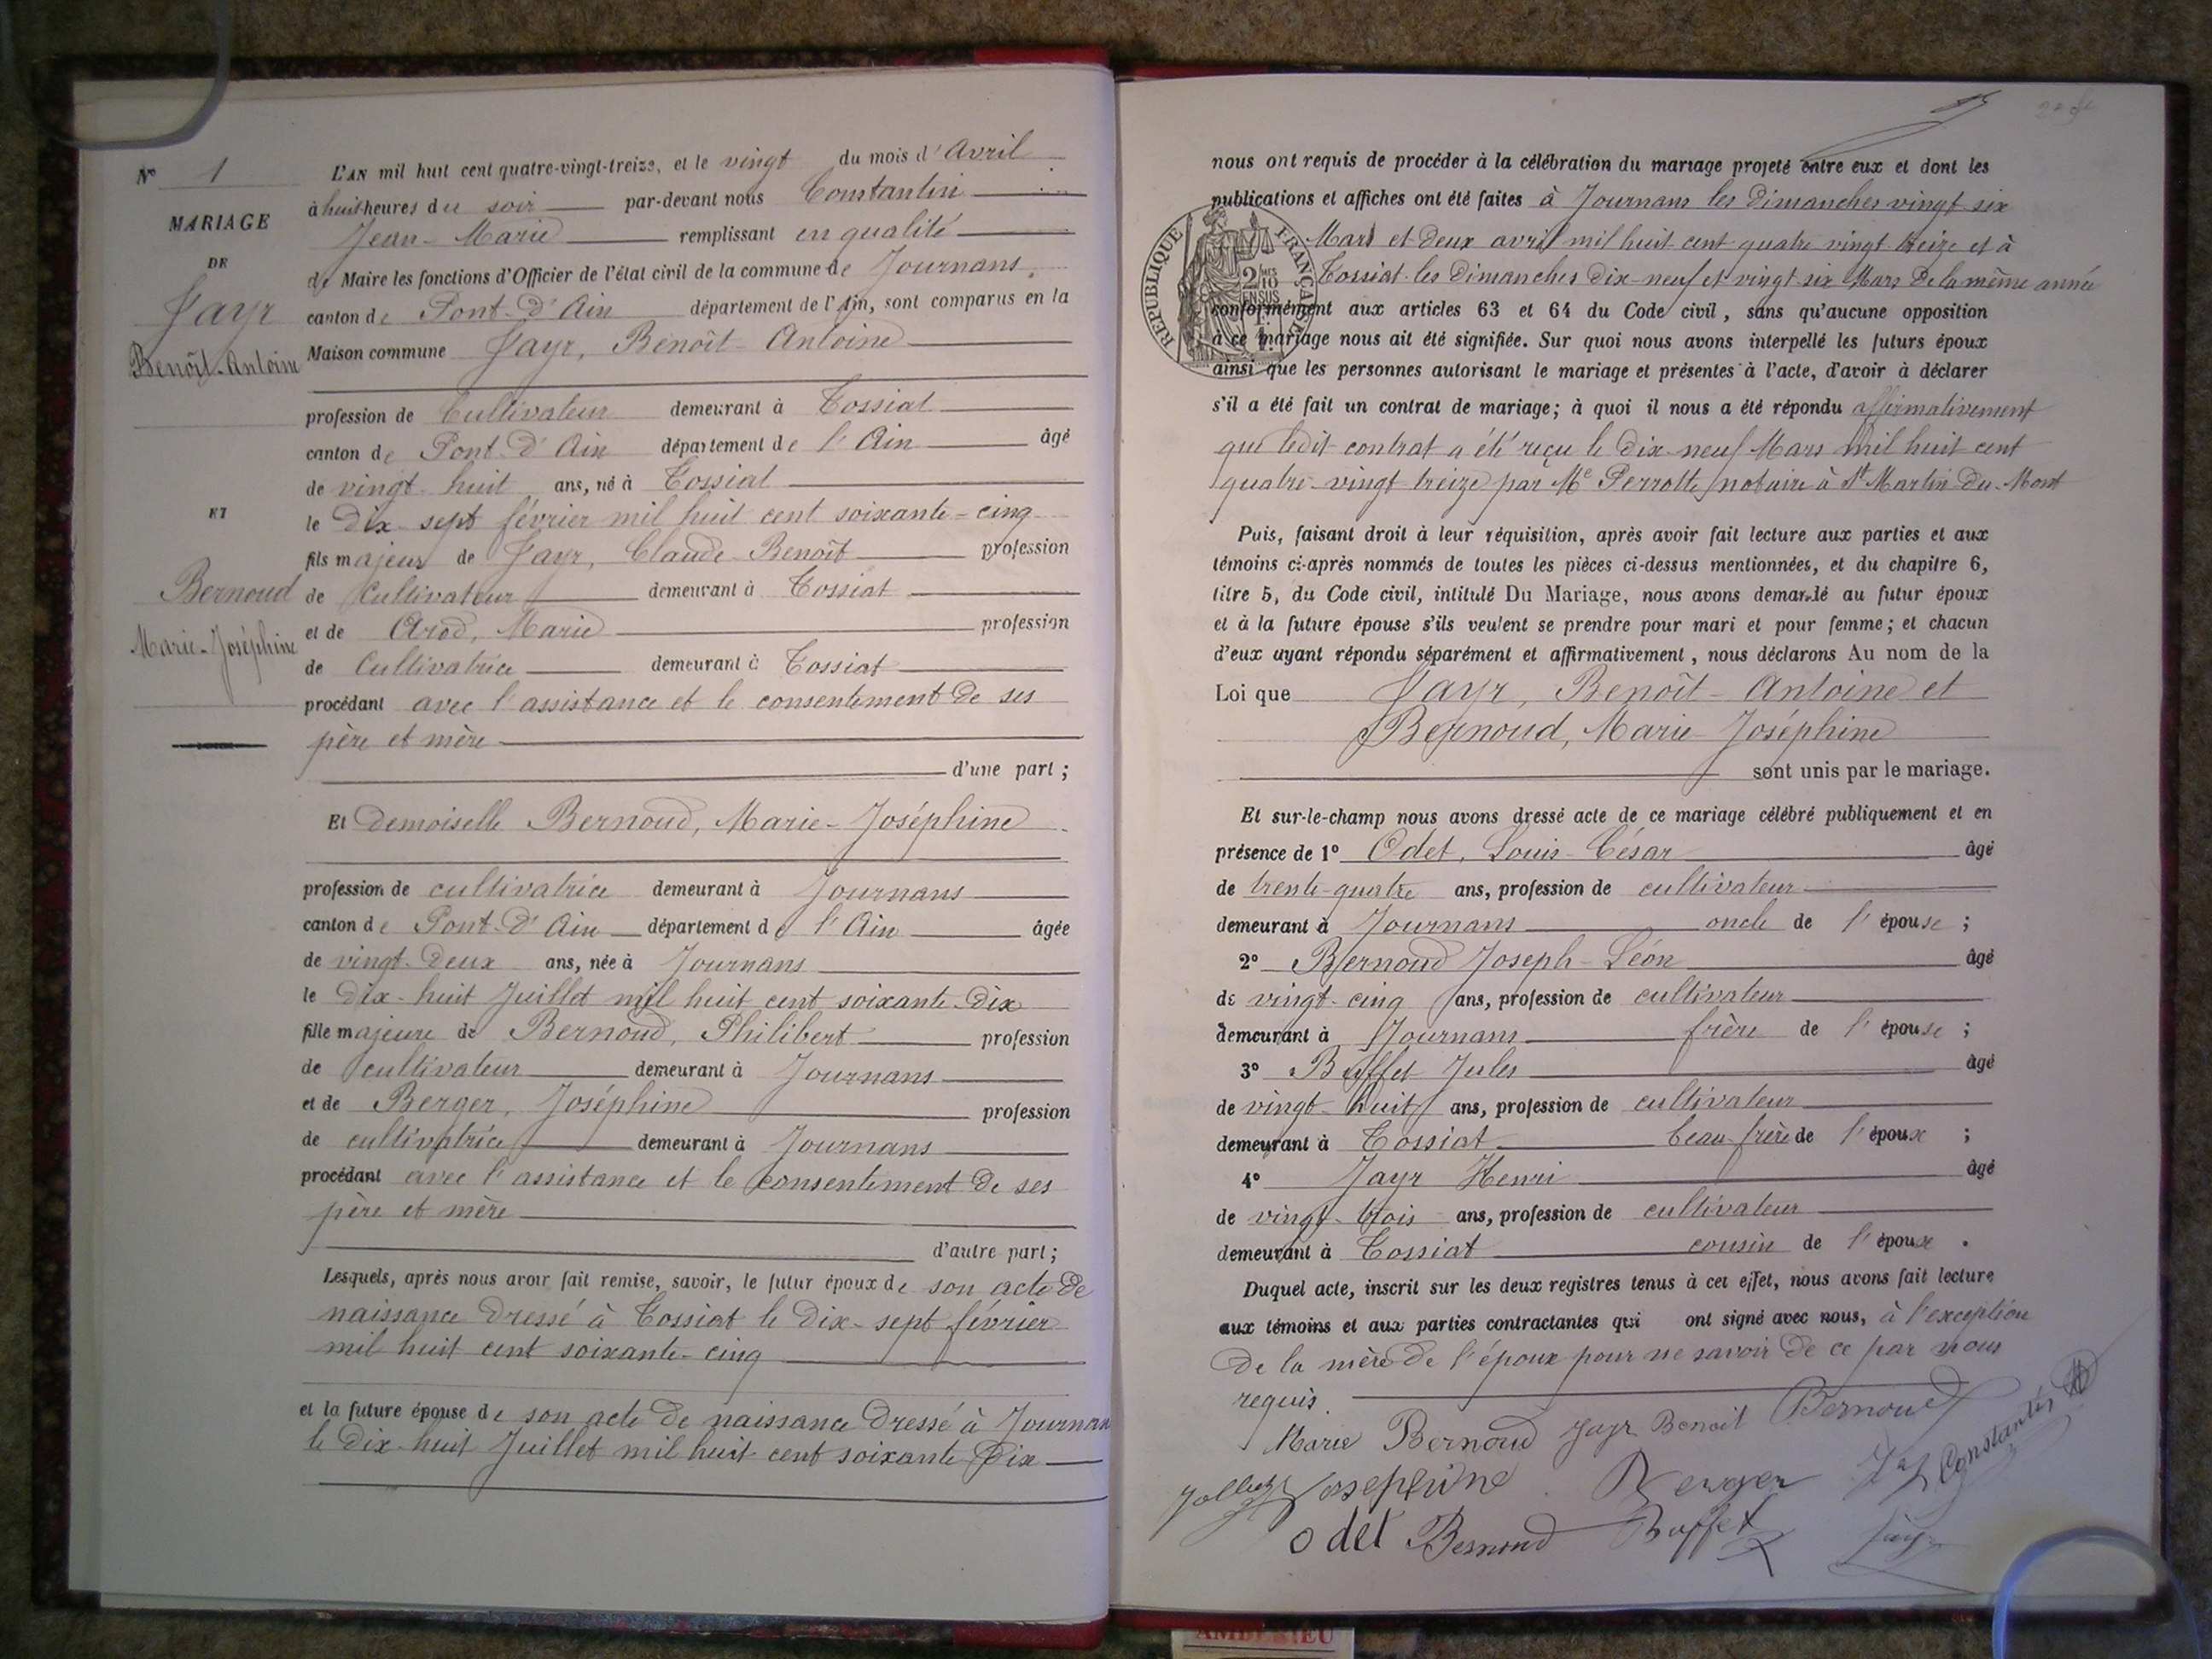 N° 1
MARIAGE
DE
Jayr
Benoît-Antoine
ET
Bernoud
Marie-Joséphine
L'AN mil huit cent quatre-vingt-treize, et le vingt du mois d'Avril
à huit heures du soir par-devant nous Constantin
Jean-Marie remplissant en qualité
de Maire les fonctions d'Officier de l'état civil de la commune de Journans,
canton de Pont-d'Ain département de l'Ain, sont comparus en la
Maison commune Jayr, Benoît-Antoine
profession de Cultivateur demeurant à Tossiat
canton de Pont-d'Ain département de l'Ain âgé
de vingt-huit ans, né à Tossiat
le dix-sept février mil huit cent soixante-cinq
fils majeur de Jayr, Claude-Benoît profession
de Cultivateur demeurant à Tossiat
et de Arod, Marie profession
de Cultivatrice demeurant à Tossiat
procédant avec l'assistance et le consentement de ses
père et mère
d'une part ;
Et Demoiselle Bernoud, Marie-Joséphine
profession de cultivatrice demeurant à Journans
canton de Pont-d'Ain département de l'Ain âgée
de vingt-deux ans, née à Journans
le dix-huit Juillet mil huit cent soixante-dix
fille majeure de Bernoud, Philibert profession
de cultivateur demeurant à Journans
et de Berger, Joséphine profession
de cultivatrice demeurant à Journans
procédant avec l'assistance et le consentement de ses
père et mère
d'autre part ;
Lesquels, après nous avoir fait remise, savoir, le futur époux de son acte de
naissance dressé à Tossiat le dix-sept février
mil huit cent soixante-cinq
et la future épouse de son acte de naissance dressé à Journans
le dix-huit Juillet mil huit cent soixante-dix
nous ont requis de procéder à la célébration du mariage projeté entre eux et dont les
publications et affiches ont été faites à Journans les dimanches vingt six
Mars et deux avril mil huit cent quatre vingt treize et à
Tossiat les dimanches dix-neuf et vingt-six Mars de la même année
conformément aux articles 63 et 64 du Code civil, sans qu'aucune opposition
à ce mariage nous ait été signifiée. Sur quoi nous avons interpellé les futurs époux
ainsi que les personnes autorisant le mariage et présentes à l'acte, d'avoir à déclarer
s'il a été fait un contrat de mariage; à quoi il nous a été répondu affirmativement
que ledit contrat a été reçu le dix-neuf Mars mil huit cent
quatre-vingt treize par Me Perrotte notaire à St Martin-du-Mont
RÉPUBLIQUE FRANÇAISE
2/10 EN SUS
Puis, faisant droit à leur réquisition, après avoir fait lecture aux parties et aux
témoins ci-après nommés de toutes les pièces ci-dessus mentionnées, et du chapitre 6,
titre 5, du Code civil, intitulé Du Mariage, nous avons demandé au futur époux
et à la future épouse s'ils veulent se prendre pour mari et pour femme; et chacun
d'eux ayant répondu séparément et affirmativement, nous déclarons Au nom de la
Loi que Jayr, Benoît-Antoine et
Bernoud, Marie-Joséphine
sont unis par le mariage.
Et sur-le-champ nous avons dressé acte de ce mariage célébré publiquement et en
présence de 1° Odet, Louis-César âgé
de trente-quatre ans, profession de cultivateur
demeurant à Journans oncle de l'épouse ;
2° Bernoud Joseph-Léon âgé
de vingt-cinq ans, profession de cultivateur
demeurant à Journans frère de l'épouse ;
3° Buffet Jules âgé
de vingt-huit ans, profession de cultivateur
demeurant à Tossiat beau-frère de l'époux ;
4° Jayr Henri âgé
de vingt-trois ans, profession de cultivateur
demeurant à Tossiat cousin de l'époux .
Duquel acte, inscrit sur les deux registres tenus à cet effet, nous avons fait lecture
aux témoins et aux parties contractantes qui ont signé avec nous, à l'exception
de la mère de l'époux pour ne savoir de ce par nous
requis.
Marie Bernoud Jayr Benoit Bernoud
Josephine Berger Constantin
Odet Bernoud Buffet Jayr